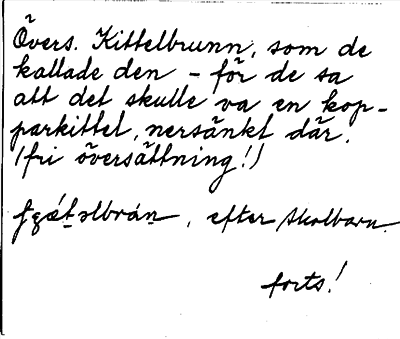 Övers. Kittelbrunn, som de
kallade den – för de sa
att det skulle va en kop-
parkittel, nersänkt där.
(fri översättning!)
, efter Skolbarn.
forts!